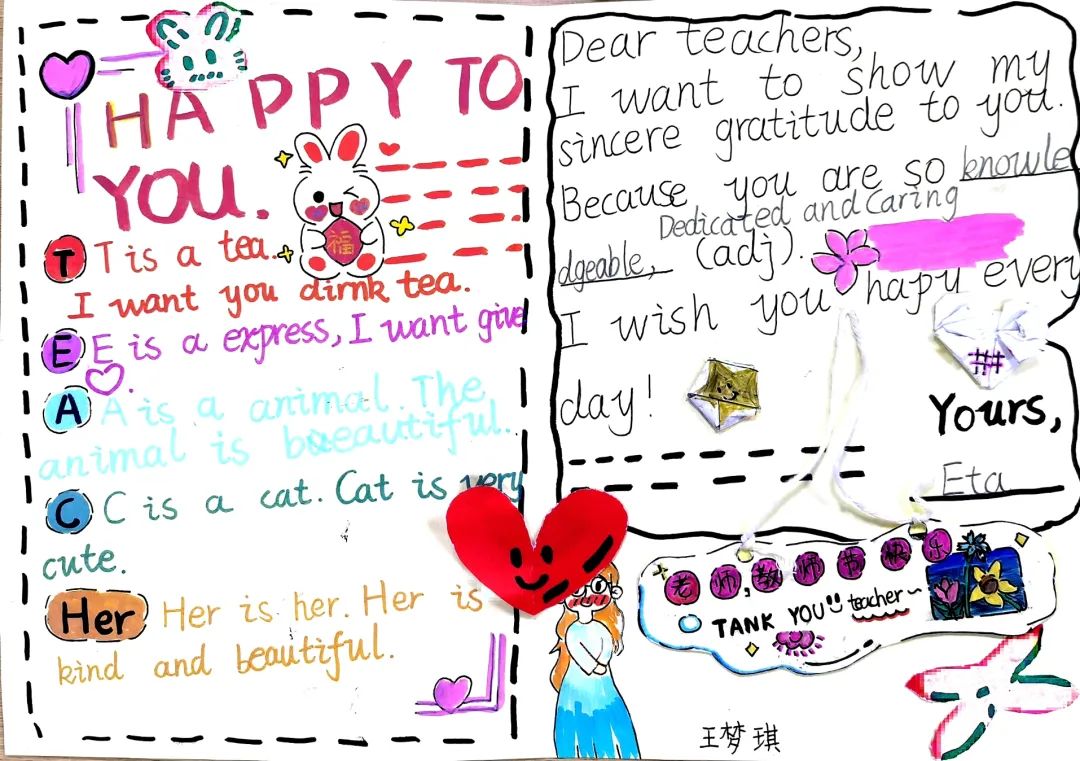 HAPPY TO
YOU.
福
T T is a tea.
I want you dirnk tea.
E E is a express, I want give
A A is a animal. The
animal is baeautiful.
C C is a cat. Cat is very
cute.
Her Her is her. Her is
kind and beautiful.
Dear teachers,
I want to show my
sincere gratitude to you.
Because you are so knowle
Dedicated and caring
dgeable, (adj).
I wish you hapy every
day!
Yours,
Eta
老师,教师节快乐
TANK YOU teacher~
王梦琪